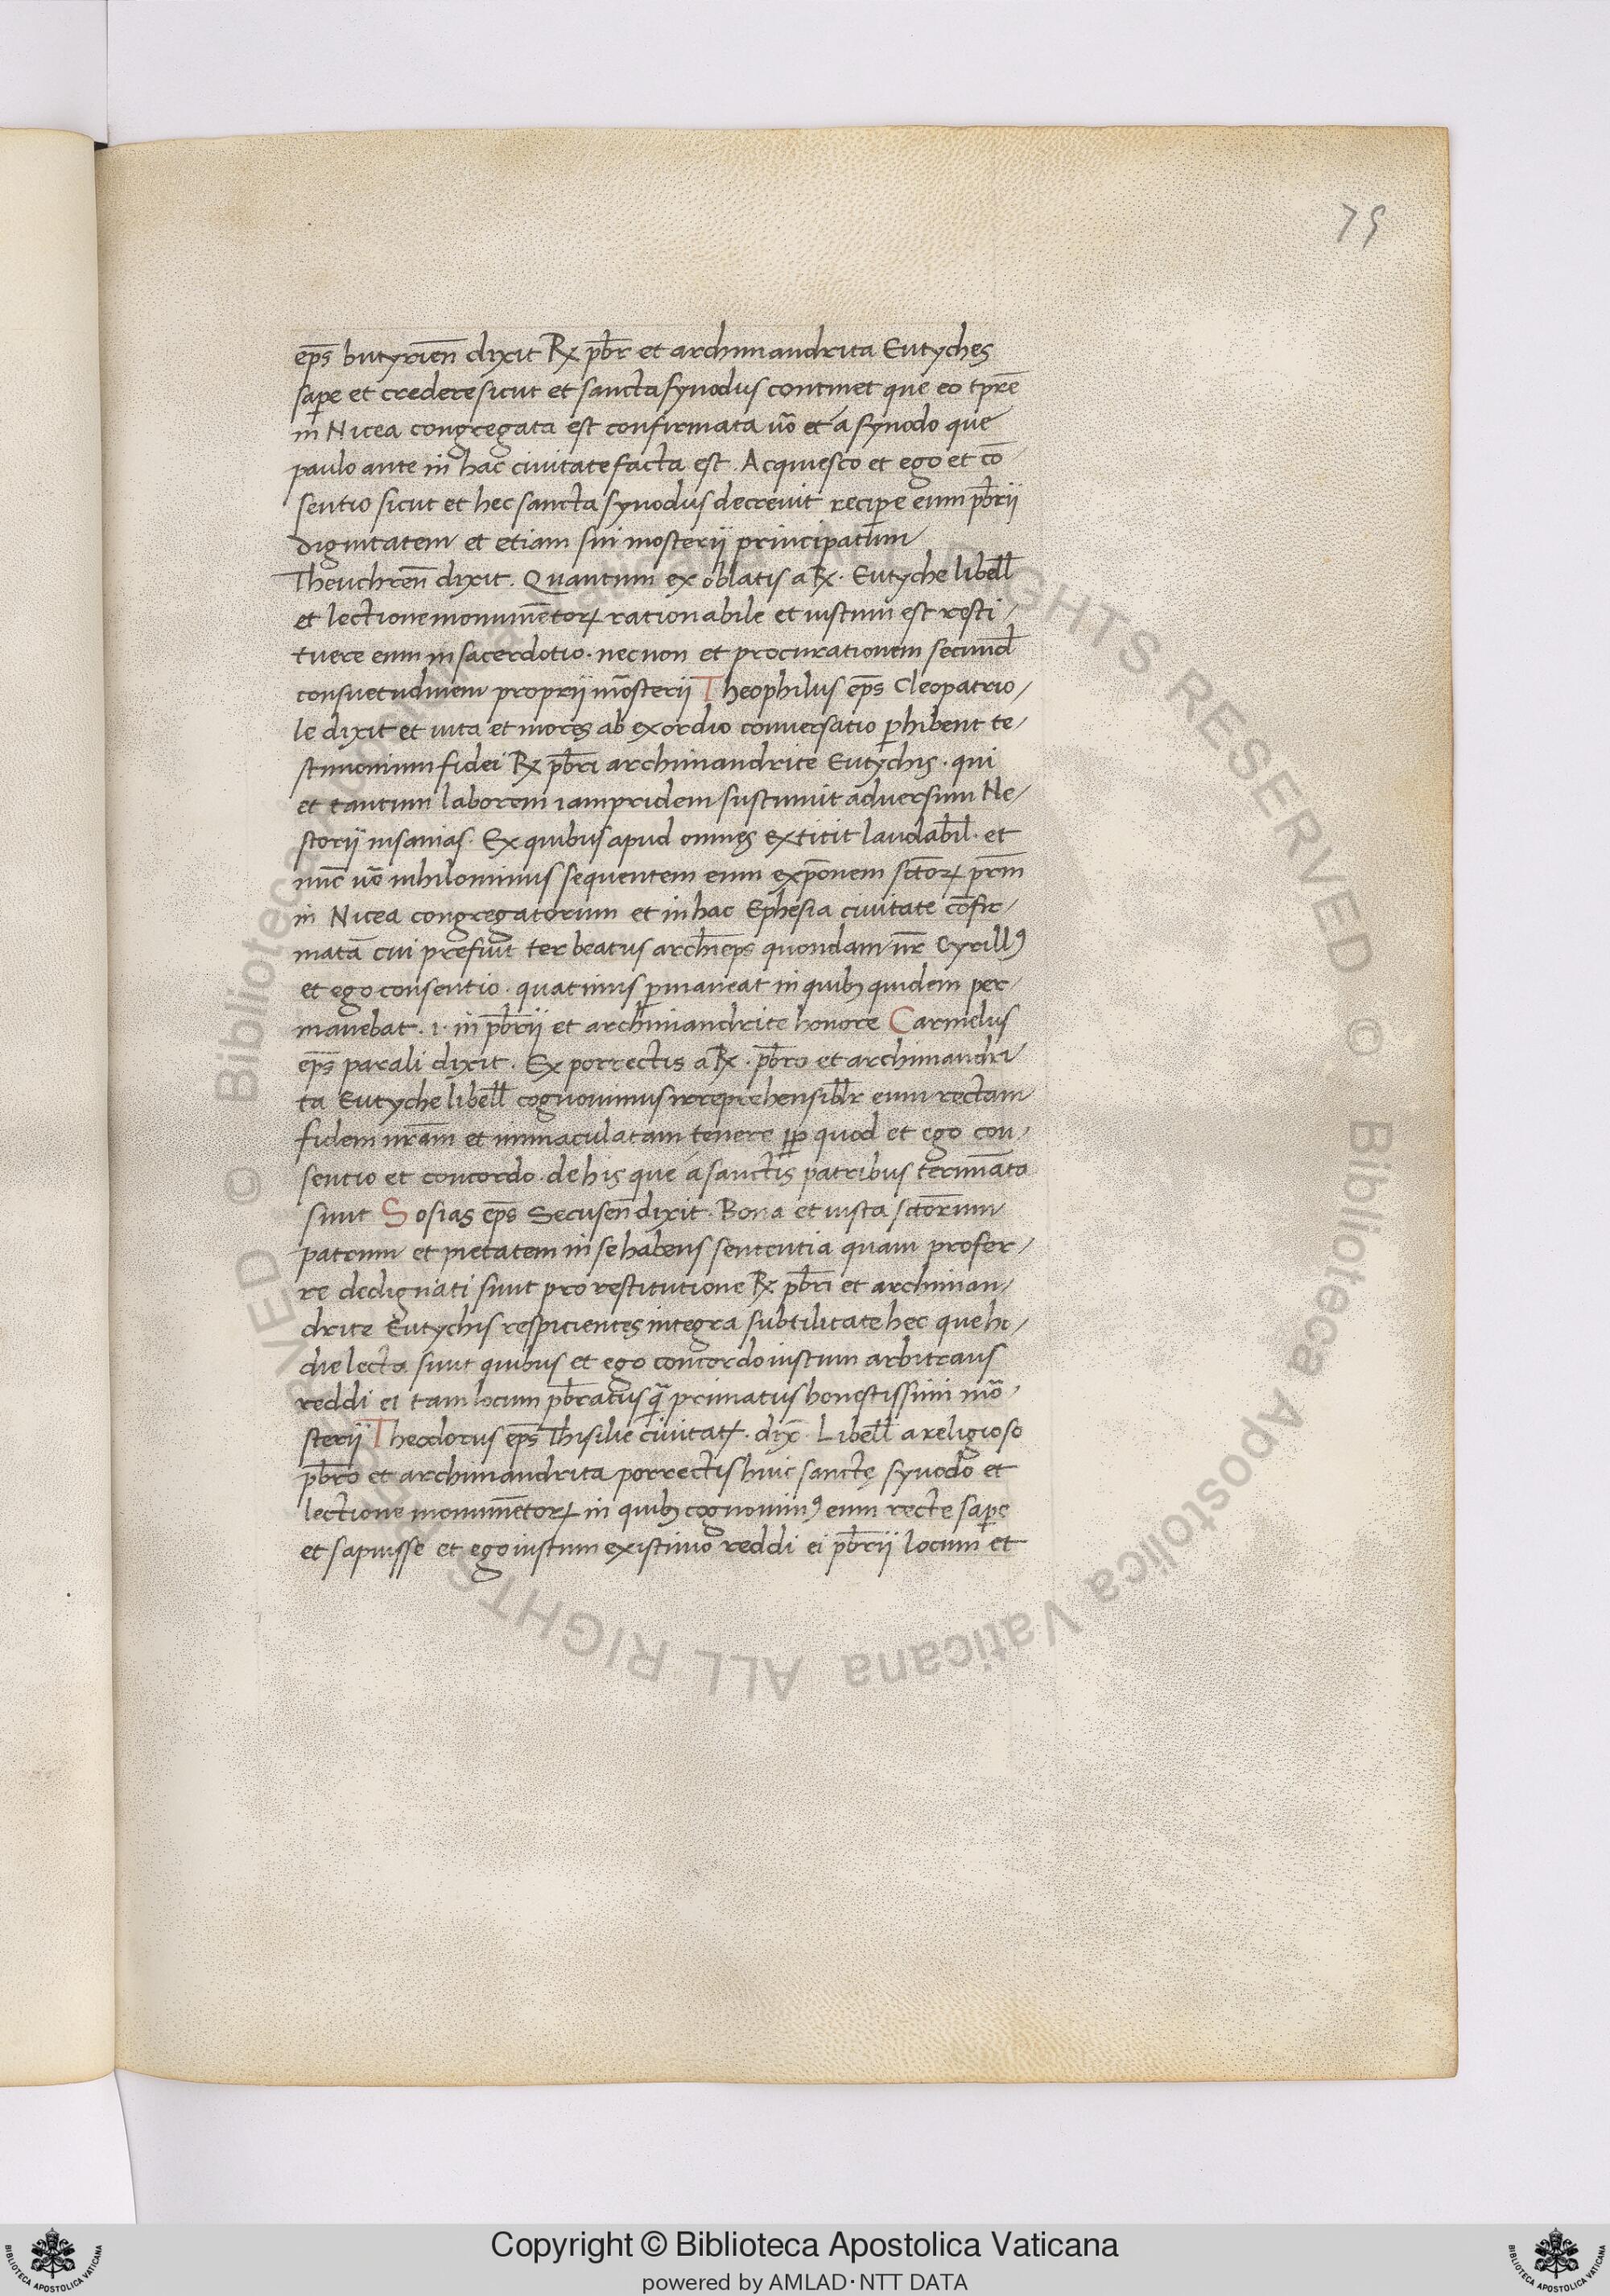 79
ep̄s butyrien̄ dixit R℞ pb̄r et archimandrita Eutyches
sap̱e et credere sicut et sancta synodus continet que eo tpr̄e
in Nicea congregata est confirmata ūo et á synodo que
paulo ante in hac ciuitate facta est. Acquiesco et ego et cō-
sentio sicut et hec sancta synodus decreuit recip̱e eum pb̄rij
dignitatem et etiam sui mōsterij principatum
Theuchren̄ dixit. Quantum ex oblatis a R℞. Eutyche libell̄
et lectione monumētoꝝ rationabile et iustum est resti-
tuere eum in sacerdotio. necnon et procurationem secund̄
consuetudinem proprij mōsterij Theophilus ep̄s Cleopatrio-
le dixit et uita et mores ab exordio conuersatio ꝑhibent te-
stimonium fidei R℞ pb̄ri archimandrite Eutychis. qui
et tantum laborem iampridem sustinuit aduersum Ne-
storij insanias. Ex quibus apud omnes extitit laudabil̄. et
nūc ūo nihilominus sequentem eum exp̄onem sc̄toꝝ pr̄m
in Nicea congregatorum et in hac Ephesia ciuitate cōfir-
matā cui prefuit ter beatus archiep̄s quondam nr̄ Cyrillꝰ
et ego consentio. quatinus ꝑmaneat in quibꝫ quidem per-
manebat. i. in pb̄rij et archimandrite honore Carmelus
ep̄s parali dixit. Ex porrectis a R℞. pb̄ro et archimandri
ta Eutyche libell̄ cognouimus irreprehensibl̄r eum rectam
fidem nr̄am et immaculatam tenere ꝓp quod et ego con-
sentio et concordo. de his que á sanctis patribus termīata
sunt Sosias ep̄s Secusen̄ dixit. Bona et iusta sc̄torum
patrum et pietatem in se habens sententia quam profer-
re dedignati sunt pro restitutione R℞ pb̄ri et archiman-
drite Eutychis respicientes integra subtilitate hec que ho-
die lecta sunt quibus et ego concordo iustum arbitrans
reddi ei tam locum pb̄ratus q̄ primatus honestissimi mō-
sterij Theodorus ep̄s Thisilie ciuitatꝭ. dix̄. Libell̄ a religioso
pb̄ro et archimandrita porrectis huic sanctę synodo et
lectione monumētoꝝ in quibꝫ cognouimꝰ eum recte sap̱e
et sapuisse et ego iustum existimo reddi ei pb̄rij locum et
© Biblioteca Apostolica Vaticana ALL RIGHTS RESERVED © Biblioteca Apostolica Vaticana ALL RIGHTS RESERVED
Copyright © Biblioteca Apostolica Vaticana
powered by AMLAD·NTT DATA
BIBLIOTECA APOSTOLICA VATICANA
BIBLIOTECA APOSTOLICA VATICANA